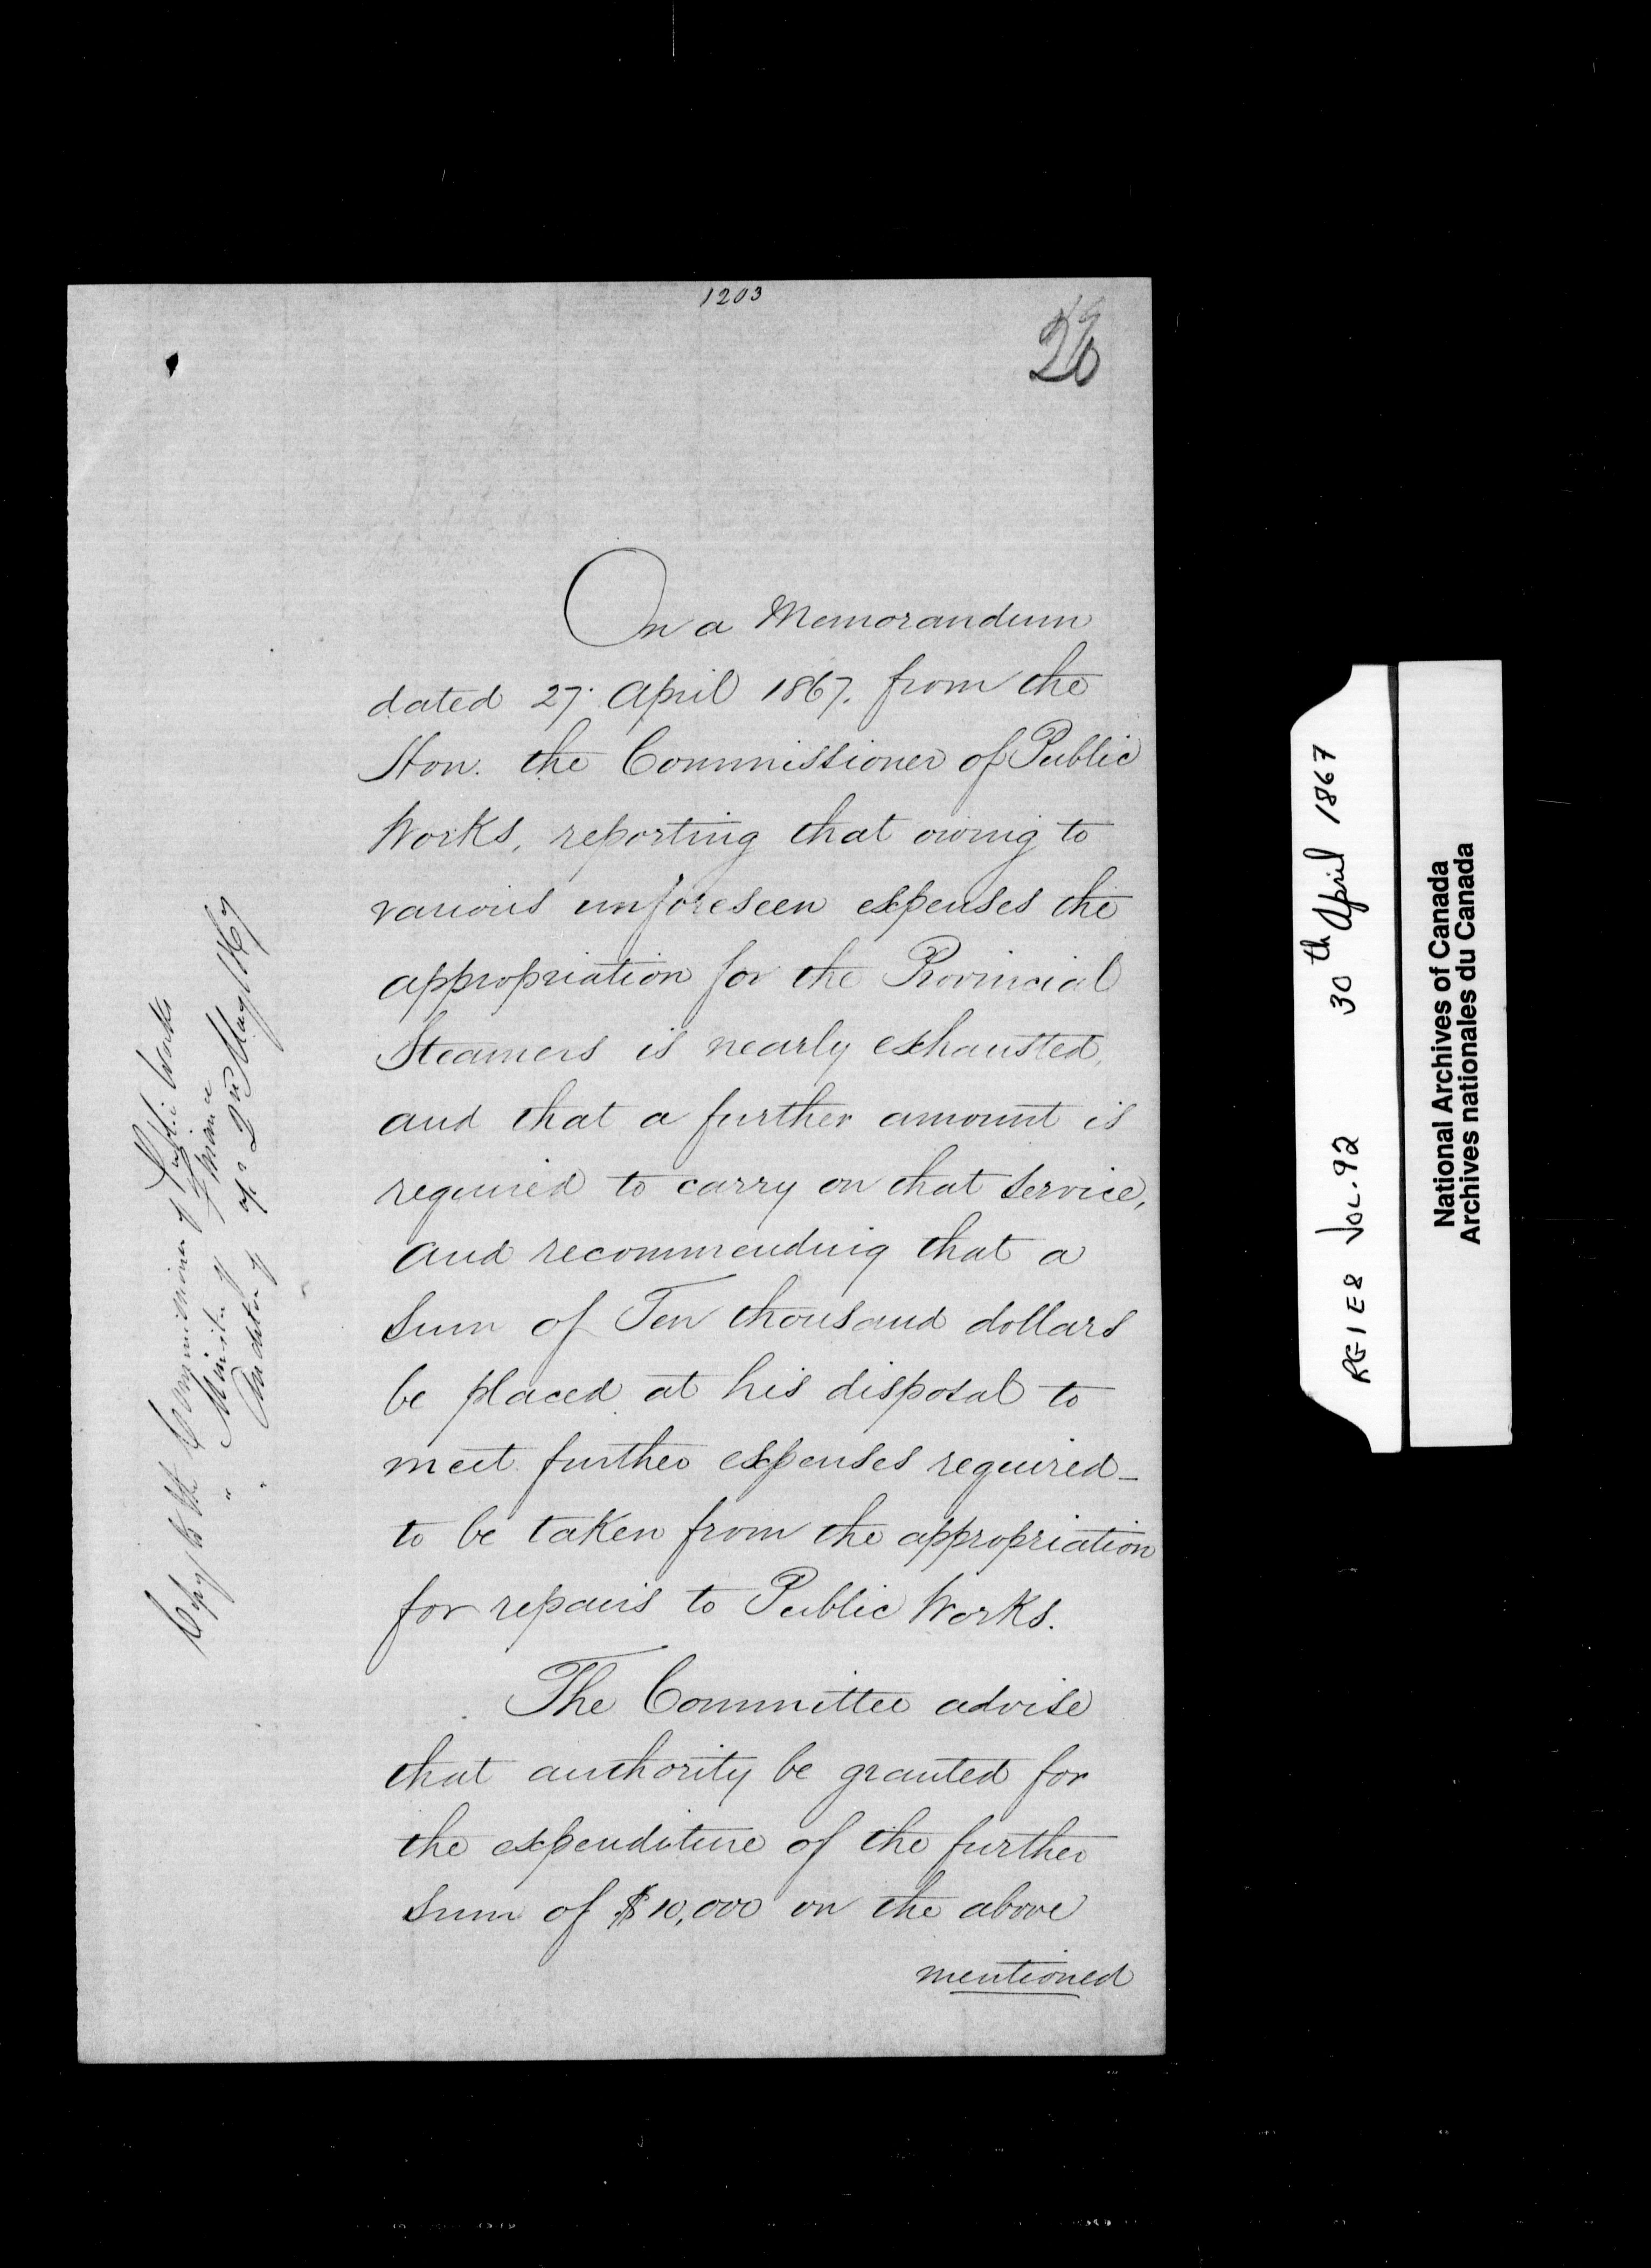 1203
26
On a Memorandum
dated 27. April 1867. from the
Hon. the Commissioner of Public
Works, reporting that owing to
various unforeseen expenses the
appropriation for the Provincial
Steamers is nearly exhausted,
and that a further amount is
required to carry on that service,
and recommending that a
sum of Ten thousand dollars
be placed at his disposal to
meet further expenses required_
to be taken from the appropriation
for repairs to Public Works.
The Committee advise
that authority be granted for
the expenditure of the further
sum of $10,000 on the above
mentioned
Commissioner of Public Works
" Minister of Finance
" Auditor May 1867
RG1E8 VOL. 92 30th April 1867
National Archives of Canada
Archives nationales du Canada